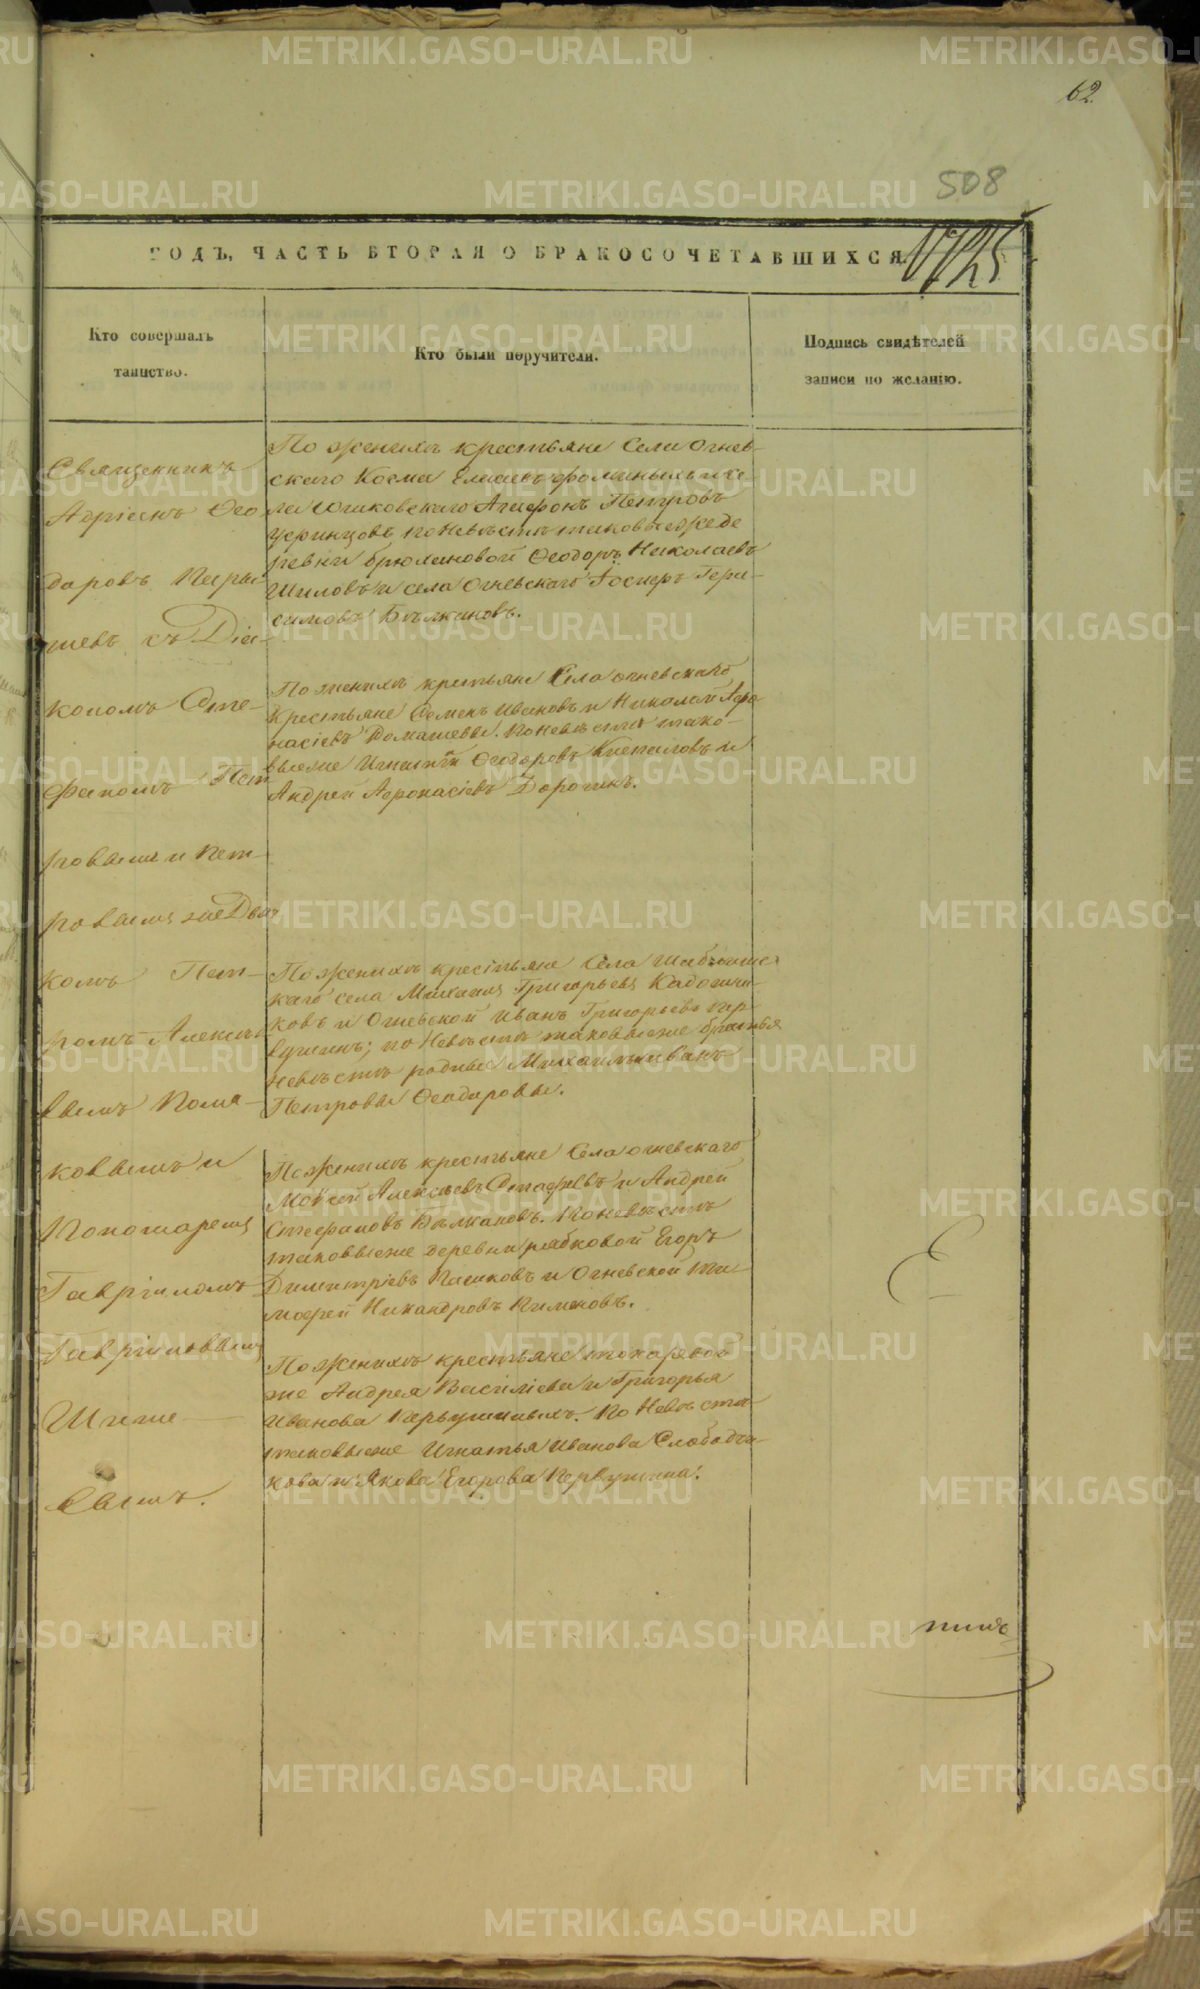 62.
508
ГОДЪ, ЧАСТЬ ВТОРАЯ О БРАКОСОЧЕТАВШИХСЯ
Кто совершалъ
таинство.
Кто были поручители.
Подпись свидѣтелей
записи по желанію.
Священникъ
Адріанъ Ѳео
даровъ
съ Діа-
кономъ Сте-
фаномъ Пет
ровымъ и Пет-
ровымъ же Дья
комъ Пет-
ромъ Алексѣе
вымъ Пома-
ковымъ и
Пономаремъ
Гавріиломъ
Гавріиловымъ
Шише-
вымъ.
По женихѣ крестьяне Села Огнев-
скаго Косма Елисеевъ и се-
ла Юшковскаго Агафонъ Петровъ
по невѣстѣ таковые же де
ревни Ѳеодоръ Николаевъ
Шиловъ и села Огневскаго Іосифъ Гера-
симовъ Бѣлкановъ.
По женихѣ крестьяне Села Огневскаго
Крестьяне Семенъ Ивановъ и Николай Афо
насіевъ Домашевы. По невѣстѣ тако-
выеже Игнатій Ѳеодоровъ и
Андрей Афонасіевъ
По женихѣ крестьяне Села
каго села Михаилъ Григорьевъ
ковъ и Огневской Иванъ Григорьевъ Пер
вушинъ; по Невѣстѣ таковыеже братья
невѣстѣ родные Михаилъ и Иванъ
Петровы Ѳеодоровы.
По женихѣ крестьяне Села Огневскаго
Моѵсей Алексѣевъ и Андрей
Стефановъ Бѣлкановъ. По невѣстѣ
таковыеже деревни Рябковой Егоръ
Димитріевъ и Огневской Ти
мофей Никандровъ Пимановъ.
По женихѣ крестьяне токаревой
же Андрея Василіева и Григорья
Иванова Первушиныхъ. По Невѣстѣ
таковыеже Игнатья Иванова Слободчи-
кова и Якова Егорова Первушина.